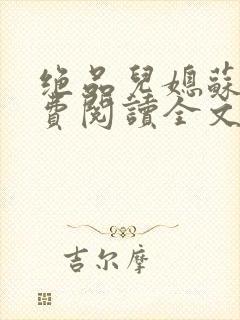 绝品兒媳蘇
費閱讀全文
吉尔摩